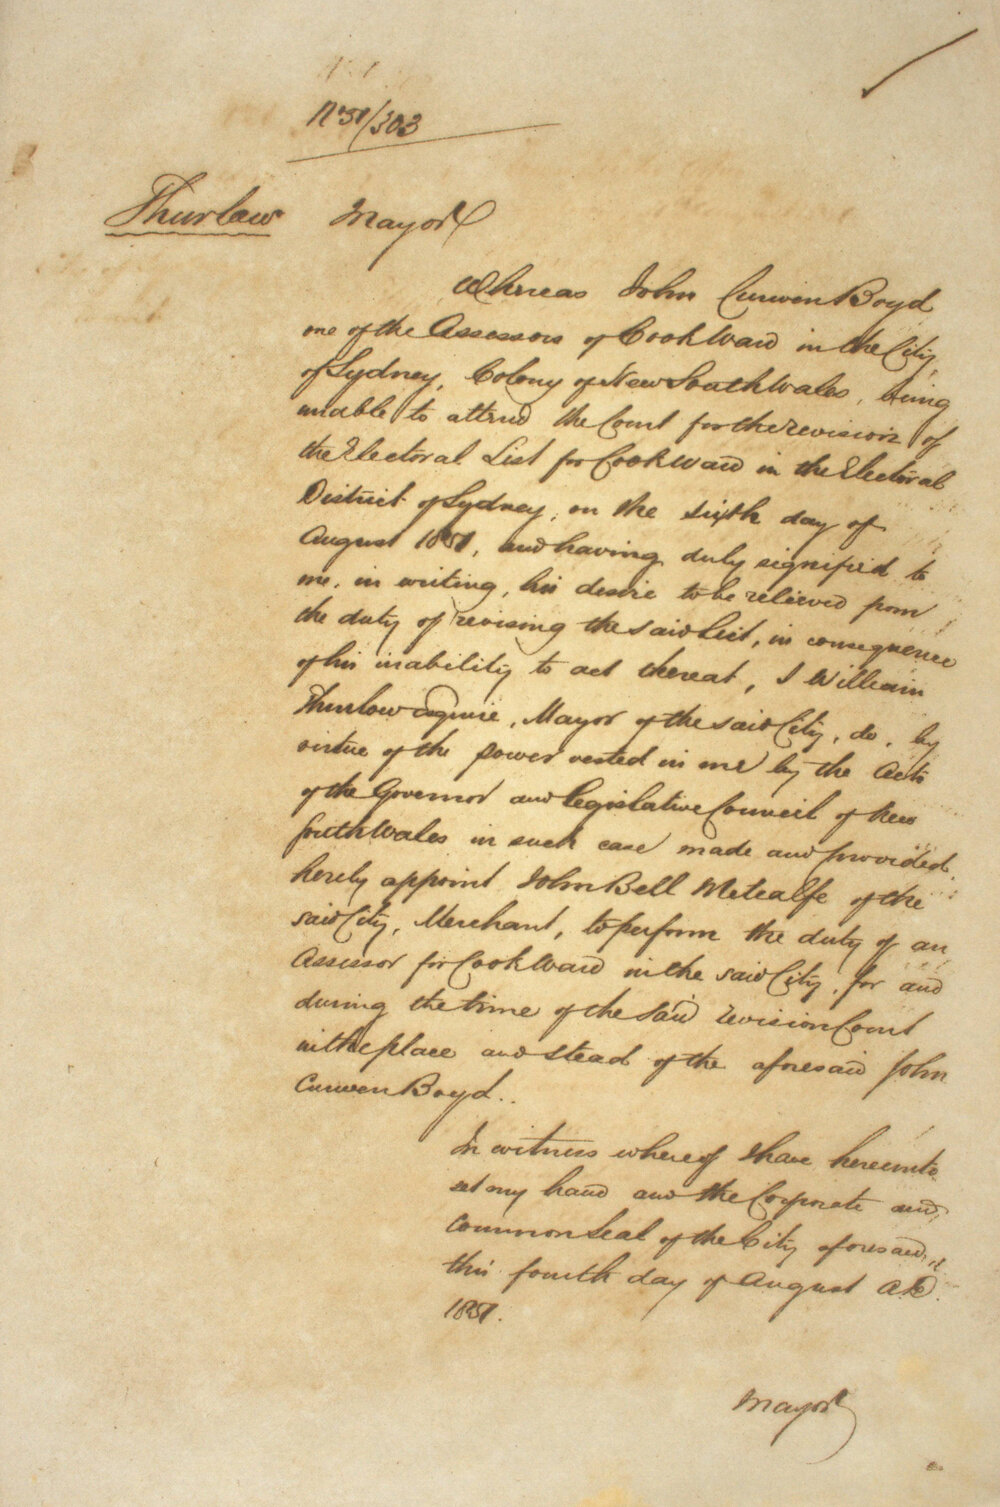 No 51/303
Thurlow Mayor
Whereas John Curwen Boyd
one of the Assessors of Cook Ward in the City
of Sydney, Colony of New South Wales, being
unable to attend the Court for the revision of
the Electoral List for Cook Ward in the Electoral
District of Sydney, on the sixth day of
August 1851, and having duly signified to
me, in writing, his desire to be relieved from
the duty of revising the said List, in consequence
of his inability to act thereat, I William
Thurlow Esquire, Mayor of the said City, do, by
virtue of the power vested in me by the Acts
of the Governor and Legislative Council of New
South Wales in such case made and provided,
hereby appoint John Bell Metcalfe of the
said City, Merchant, to perform the duty of an
Assessor for Cook Ward in the said City, for and
during the time of the said revision Court
in the place and stead of the aforesaid John
Curwen Boyd..
In witness whereof I have hereunto
set my hand and the Corporate and
Common Seal of the City aforesaid,
this fourth day of August A.D.
1851.
Mayor